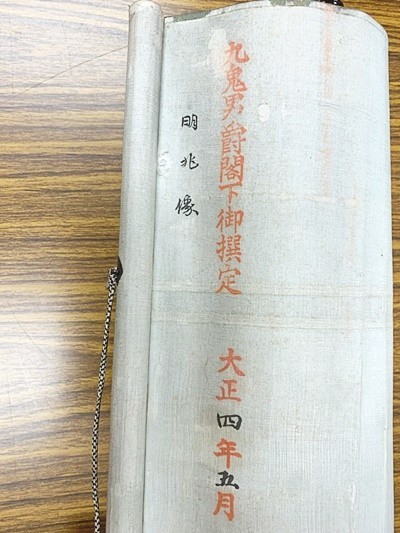 九鬼男爵閣下御撰定　大正四年五月
明兆像